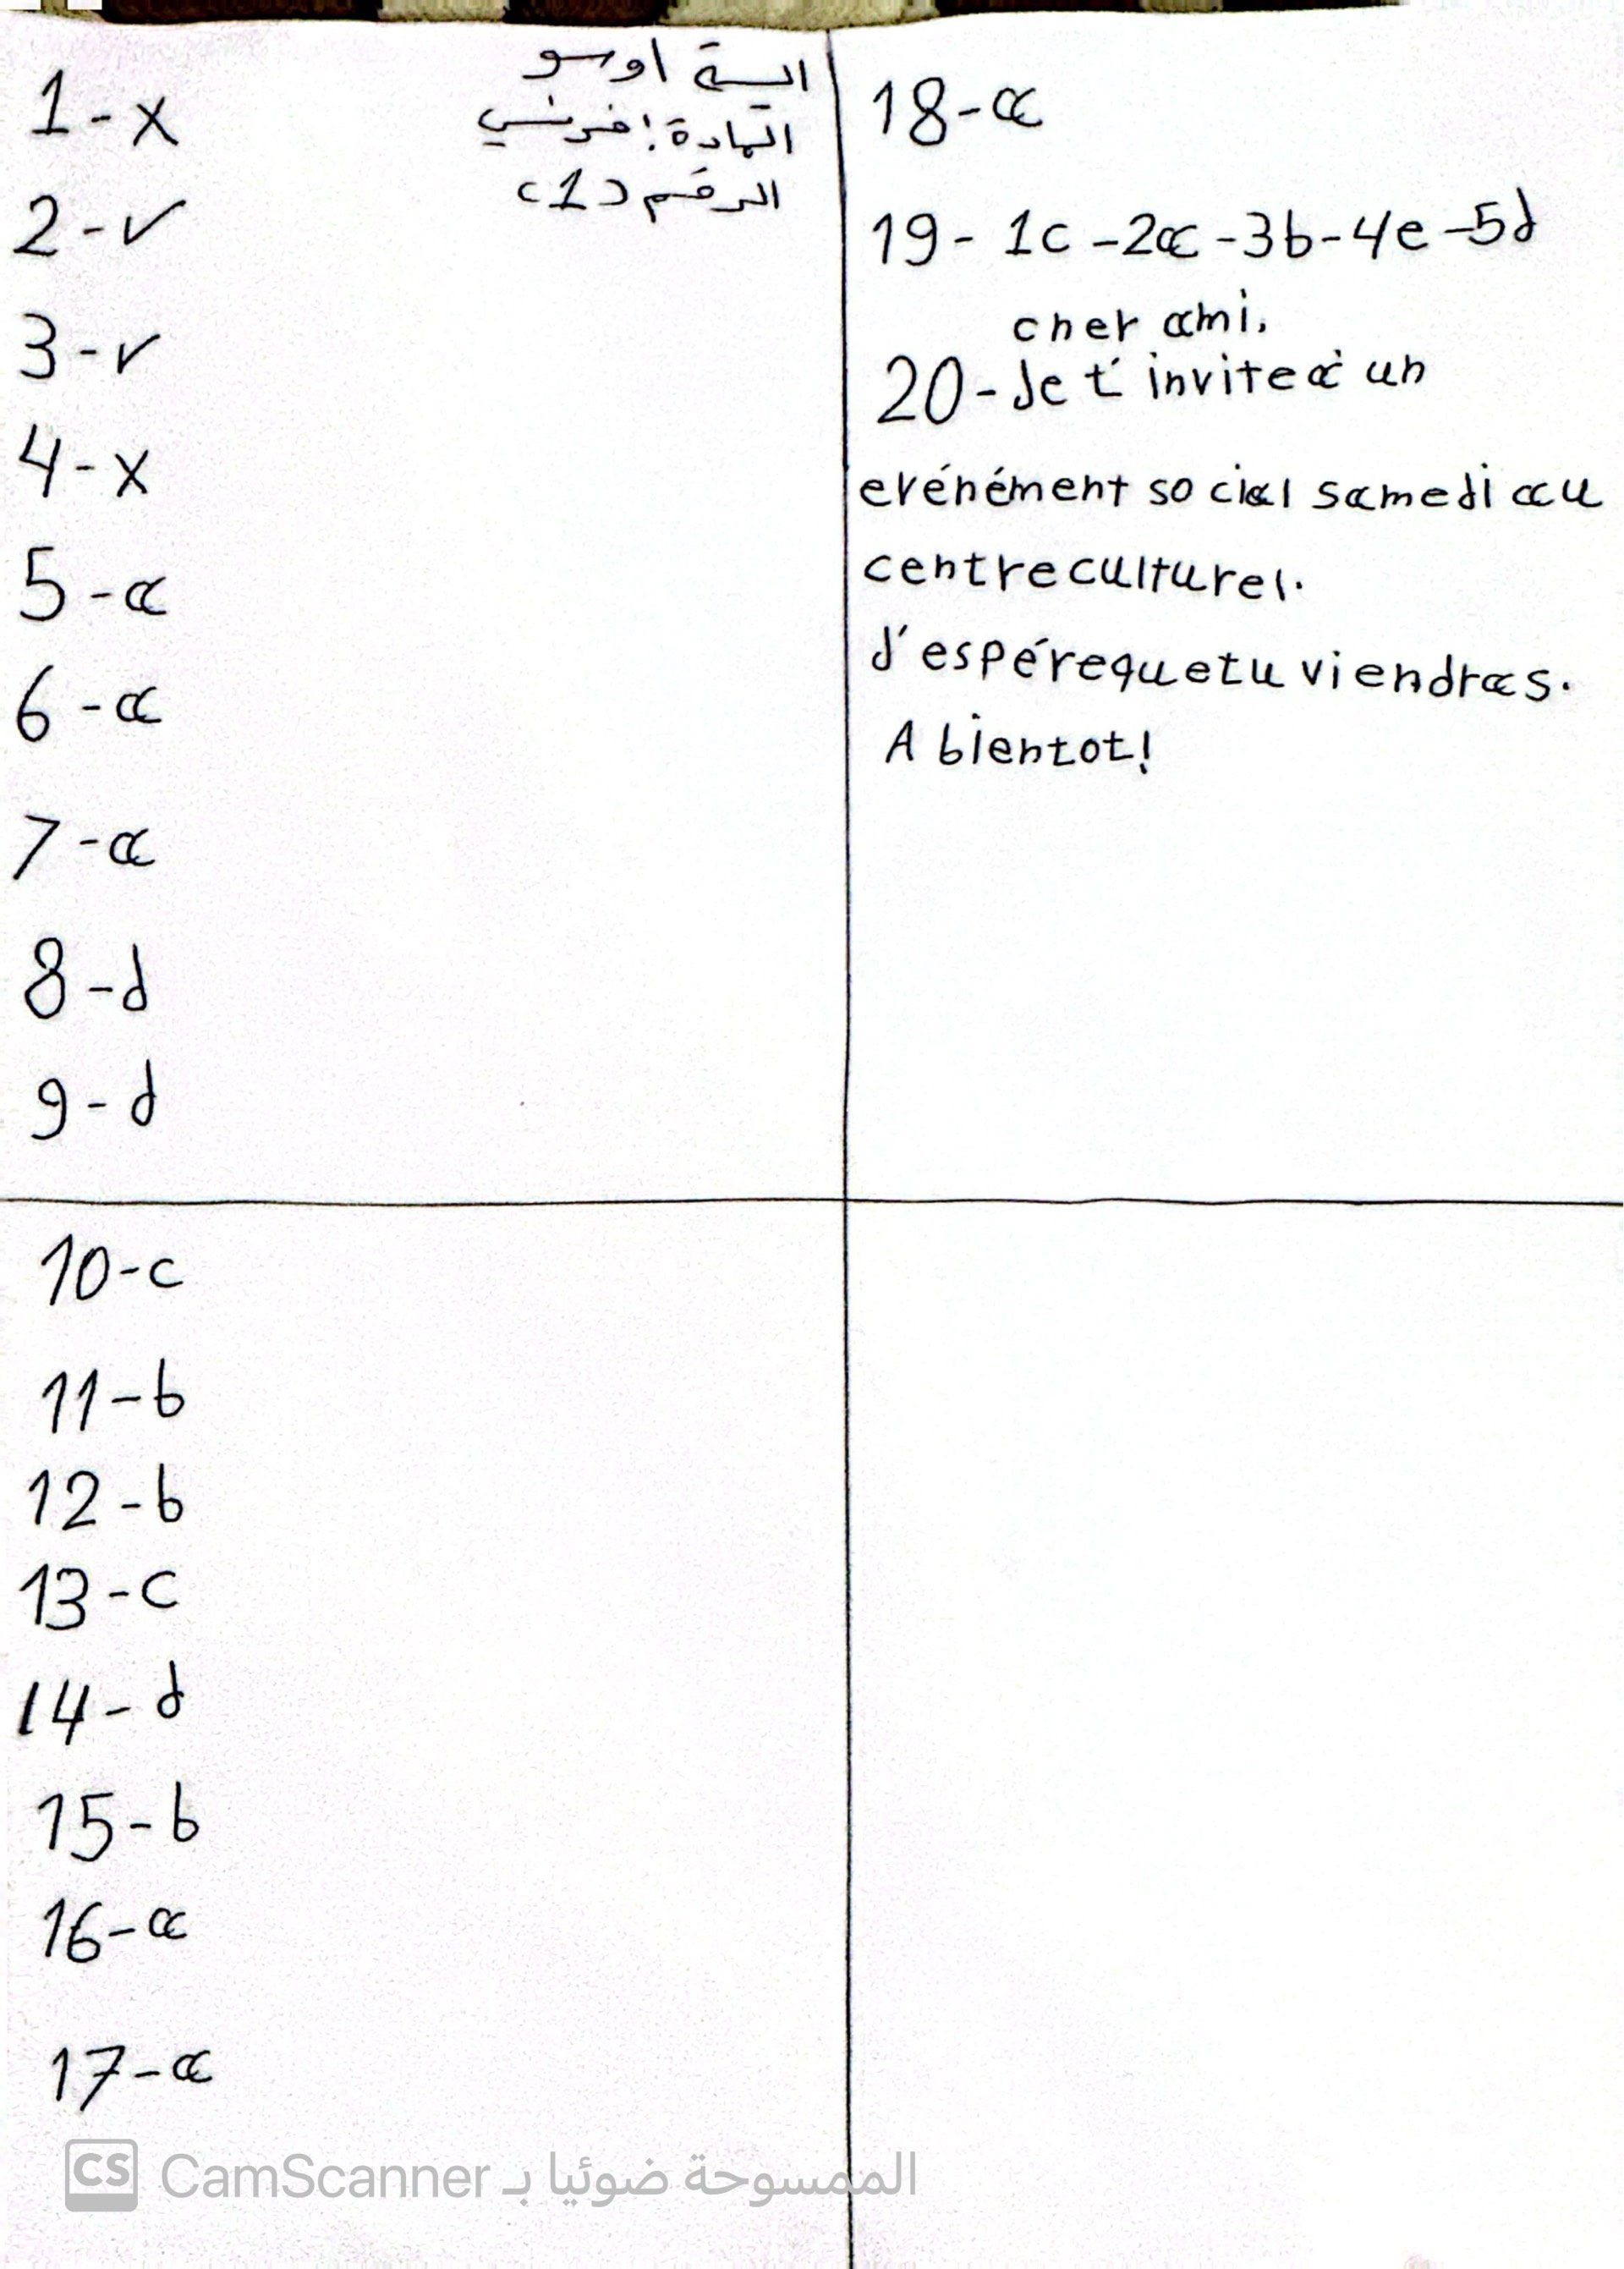 1-x
2-✓
3-✓
4-x
5-a
6-a
7-a
8-d
9-d
اوسو
المادة: فرنسي
الرقم (1)
10-c
11-b
12-b
13-c
14-d
15-b
16-a
17-a
18-a
19- 1c -2a -3b -4e -5d
cher ami,
20- Je t'invite à un
evénément social samedi au
centre culturel.
J'espére que tu viendras.
A bientot!
CS CamScanner الممسوحة ضوئيا بـ